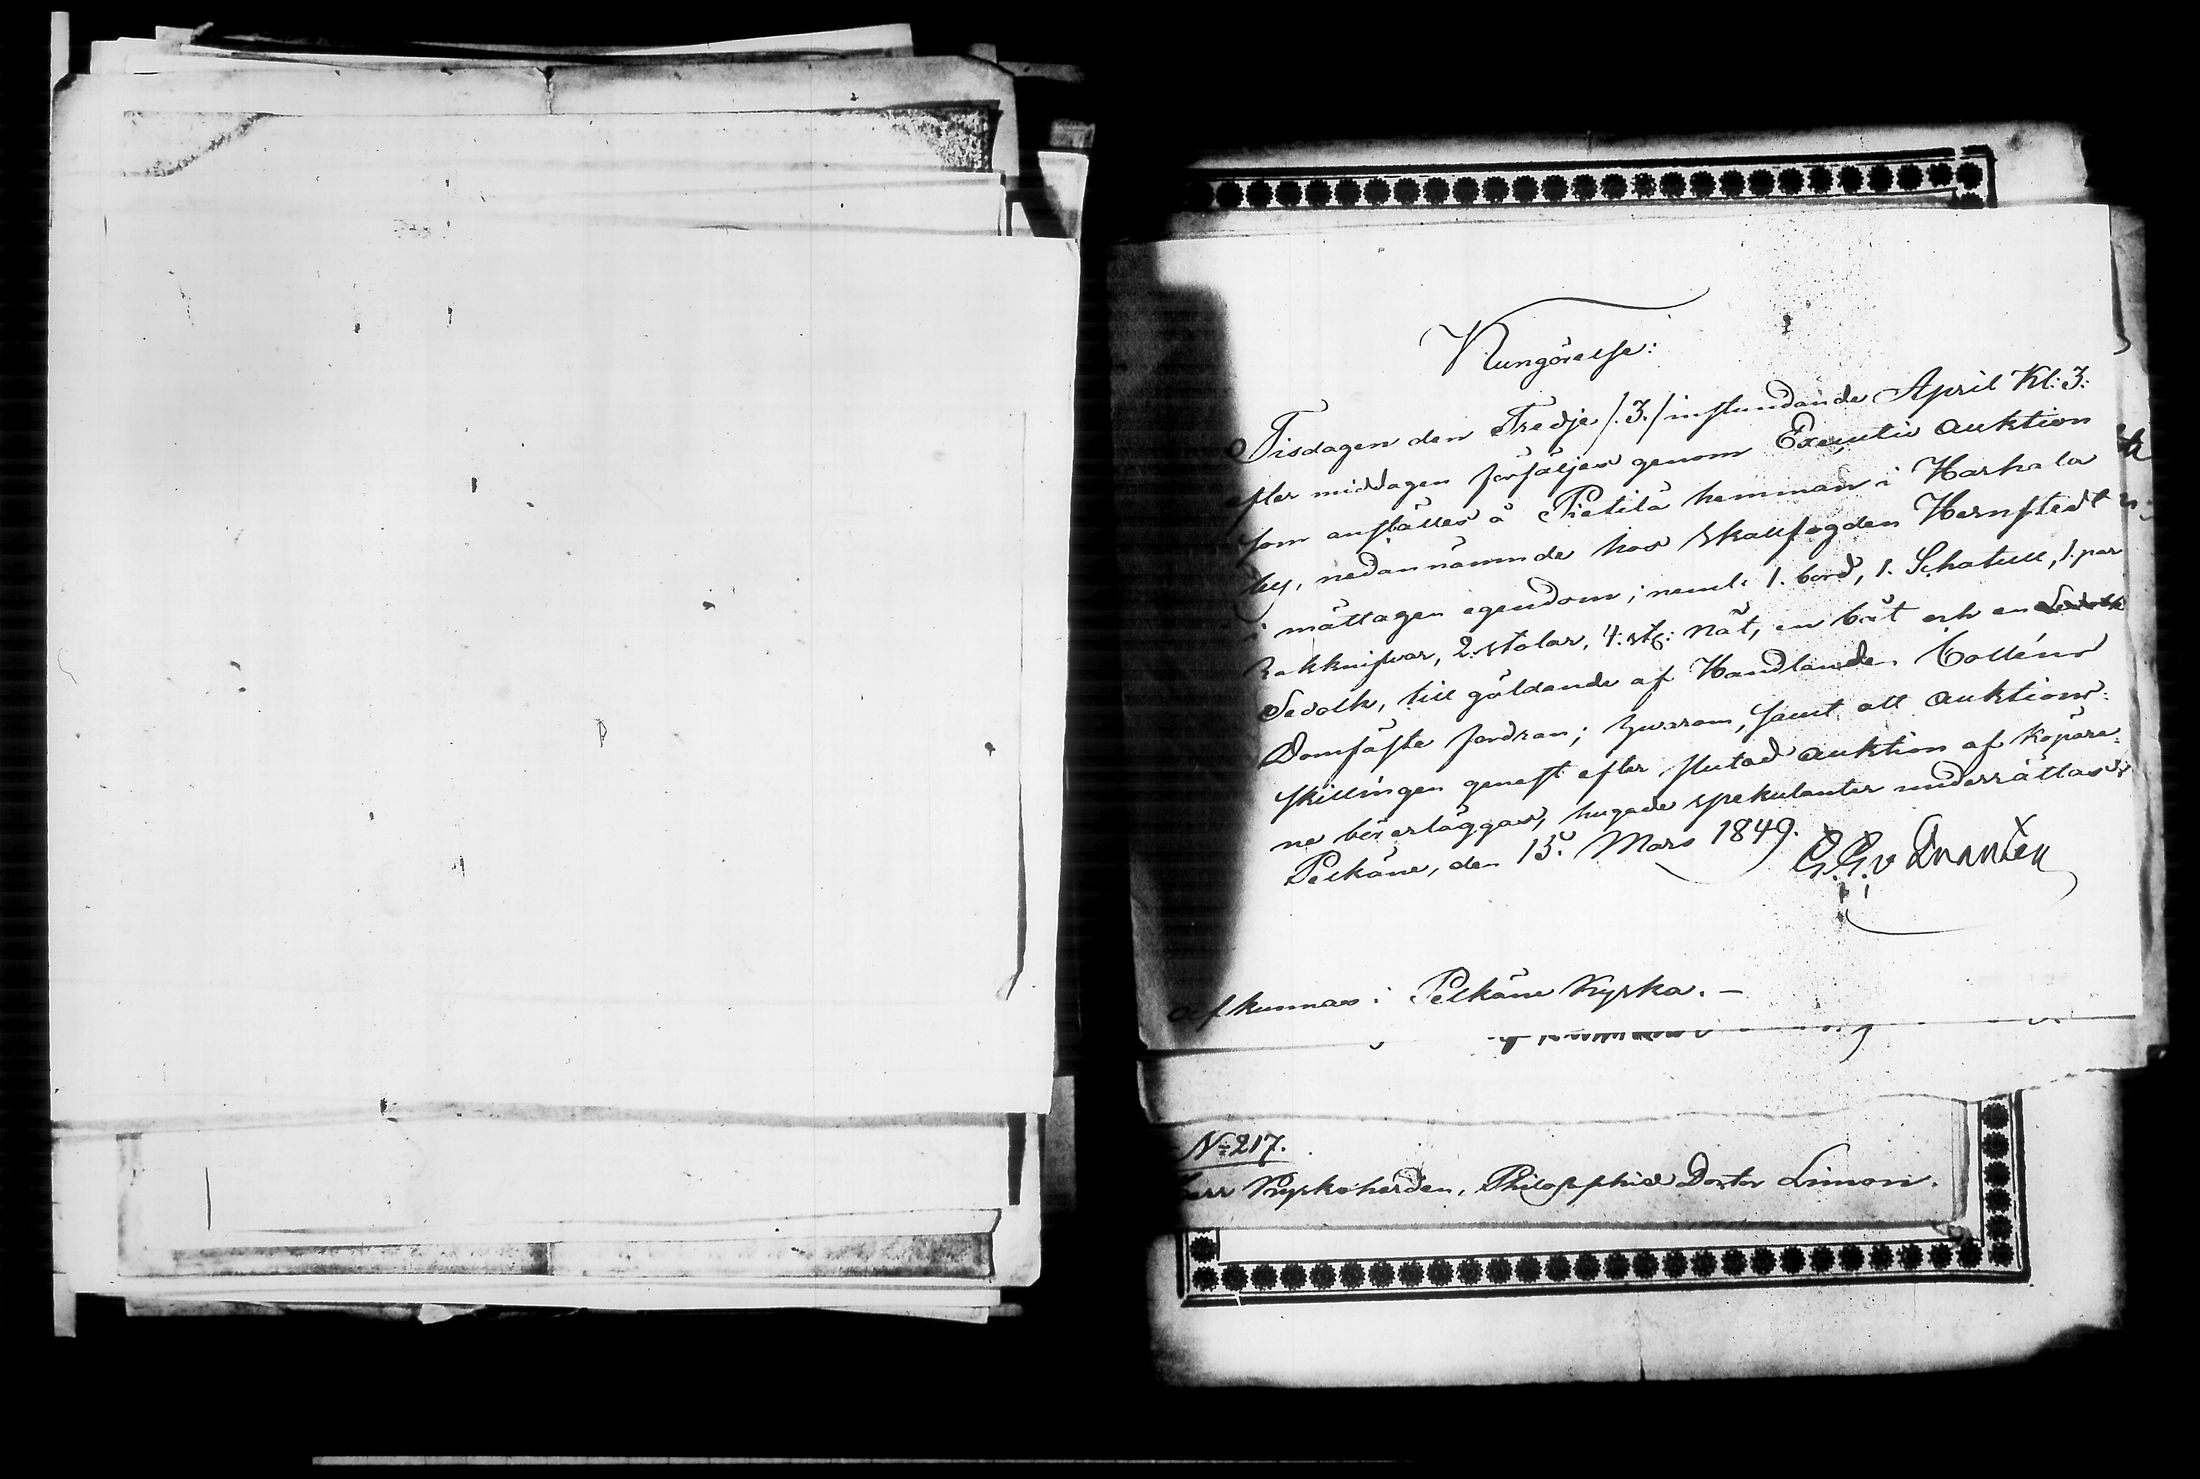 Kungörelse:
Tisdagen den Tredje /:3:/ instundande April Kl: 3:
efter middagen försäljes genom Executiv auktion
som anställes å Pietilä hemman i Harhala
by, nedannämnde hos Skallfogden Hernstedt
i mättagen egendom; neml: 1. bord, 1. Schatull, 1. par
Rakknifvar, 2. stolar, 4. st: Nät, en båt och en
Sedolk, till gäldande af Handlanden Colléns
Domfäste fordran; hvarom, samt att auktions-
skillingen genast efter slutad auktion af köpare-
ne bör erläggas, hugade spekulanter underrättas
Pelkäne, den 15. Mars 1849.
afkunnas i Pelkäne Kyrka. —
No 217.
Herr Kyrkoherden, Philosophiæ Doctor Limon.